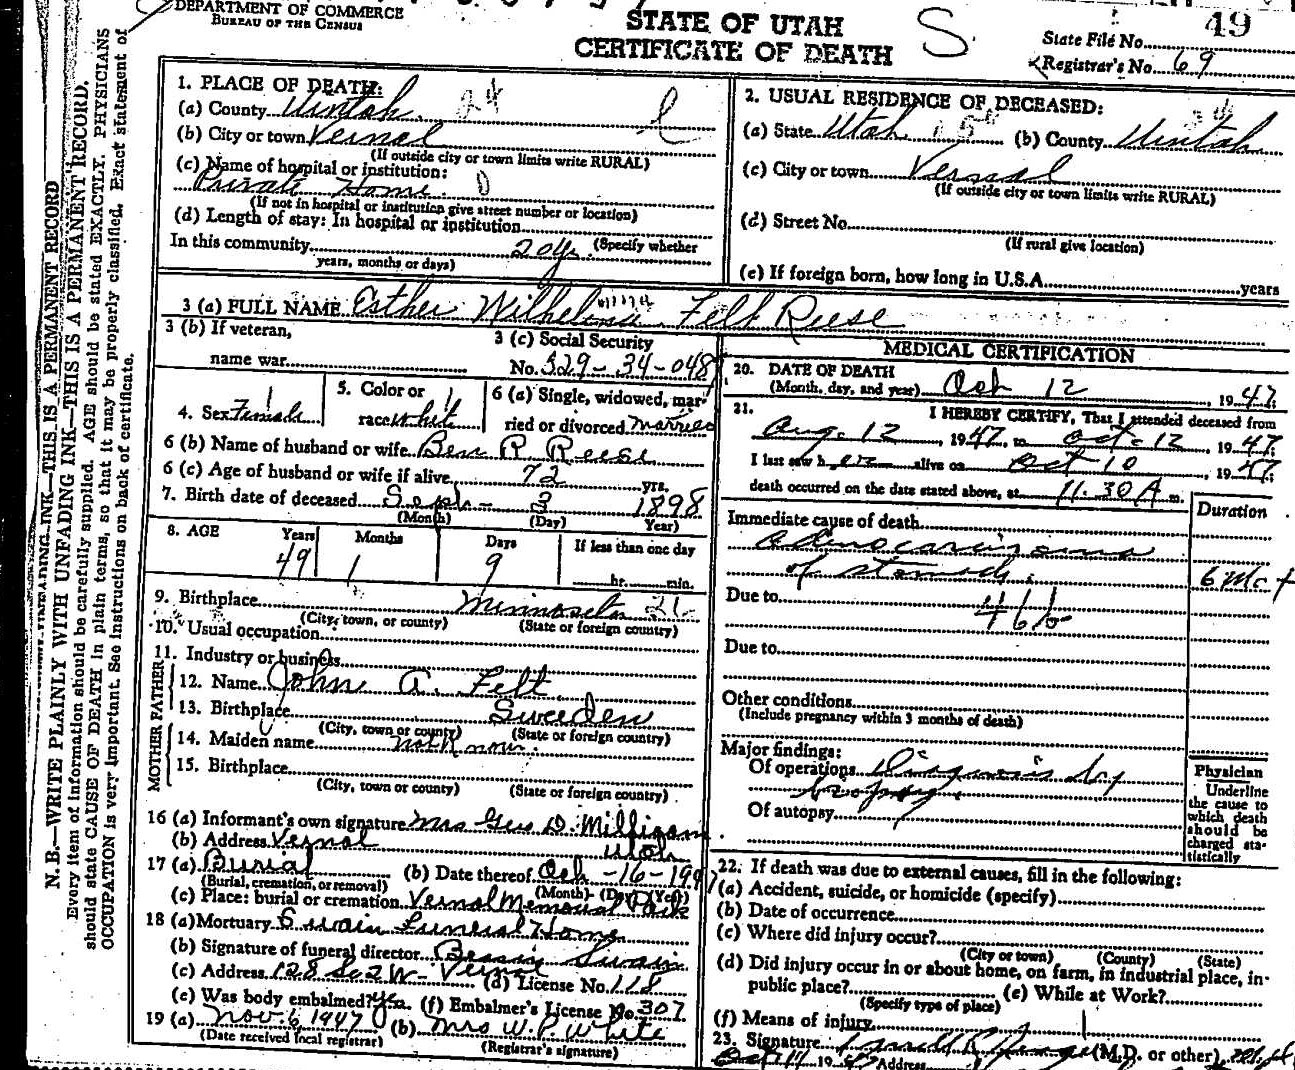 DEPARTMENT OF COMMERCE
BUREAU OF THE CENSUS
STATE OF UTAH
CERTIFICATE OF DEATH
S.
49
State File No.
Registrar's No. 69
N. B.—WRITE PLAINLY WITH UNFADING INK—THIS IS A PERMANENT RECORD
THIS IS A PERMANENT RECORD.
Every item of information should be carefully supplied. AGE should be stated EXACTLY. PHYSICIANS
should state CAUSE OF DEATH in plain terms, so that it may be properly classified. Exact statement of
OCCUPATION is very important. See instructions on back of certificate.
1. PLACE OF DEATH:
(a) County Uintah 24
(b) City or town Vernal
(If outside city or town limits write RURAL)
(c) Name of hospital or institution:
Private Home. 0
(If not in hospital or institution give street number or location)
(d) Length of stay: In hospital or institution
In this community 20 yr. (Specify whether
years, months or days)
2. USUAL RESIDENCE OF DECEASED:
(a) State Utah (b) County Uintah
(c) City or town Vernal
(If outside city or town limits write RURAL)
(d) Street No.
(If rural give location)
(e) If foreign born, how long in U.S.A. years
3 (a) FULL NAME Esther Wilhelmina Felt Reese
3 (b) If veteran,
name war
3 (c) Social Security
No. 529-34-048
4. Sex Female
5. Color or
race white
6 (a) Single, widowed, mar-
ried or divorced Married
6 (b) Name of husband or wife Ben R Reese
6 (c) Age of husband or wife if alive 72 yrs.
7. Birth date of deceased Sept- 3 1898
(Month) (Day) Year)
8. AGE Years Months Days If less than one day
49 1 9 hr. min.
9. Birthplace Minnesota 21-
(City, town, or county) (State or foreign country)
10. Usual occupation
11. Industry or business
FATHER
12. Name John A. Felt
13. Birthplace Sweeden
(City, town or county) (State or foreign country)
MOTHER
14. Maiden name not Known.
15. Birthplace
(City, town or county) (State or foreign country)
16 (a) Informant's own signature Mrs Geo D. Milligan
(b) Address Vernal Utah
17 (a) Burial (b) Date thereof Oct-16-1947
(Burial, cremation, or removal) (Month) (Day) (Year)
(c) Place: burial or cremation Vernal Memorial Park
18 (a) Mortuary Swain Funeral Home
(b) Signature of funeral director Bessie Swain
(c) Address 128 So 2 W- Vernal (d) License No. 118
(e) Was body embalmed? yes. (f) Embalmer's License No. 307
19 (a) Nov. 6, 1947 (b) Mrs W. P. White
(Date received local registrar) (Registrar's signature)
MEDICAL CERTIFICATION
20. DATE OF DEATH
(Month, day, and year) Oct 12, 1947.
21. I HEREBY CERTIFY, That I attended deceased from
Aug. 12, 1947, to Oct-12, 1947.
I last saw her alive on Oct 10, 1947
death occurred on the date stated above, at 11.30 A m.
Immediate cause of death
Duration
adenocarcinoma
of stomach. 6 Mo +
Due to 46b
Due to
Other conditions
(Include pregnancy within 3 months of death)
Major findings:
Of operations Diagnosis by
biopsy.
Of autopsy
Physician
Underline
the cause to
which death
should be
charged sta-
tistically
22. If death was due to external causes, fill in the following:
(a) Accident, suicide, or homicide (specify)
(b) Date of occurrence
(c) Where did injury occur?
(City or town) (County) (State)
(d) Did injury occur in or about home, on farm, in industrial place, in-
public place? (e) While at Work?
(Specify type of place)
(f) Means of injury
23. Signature (M.D. or other)
19 47 Address